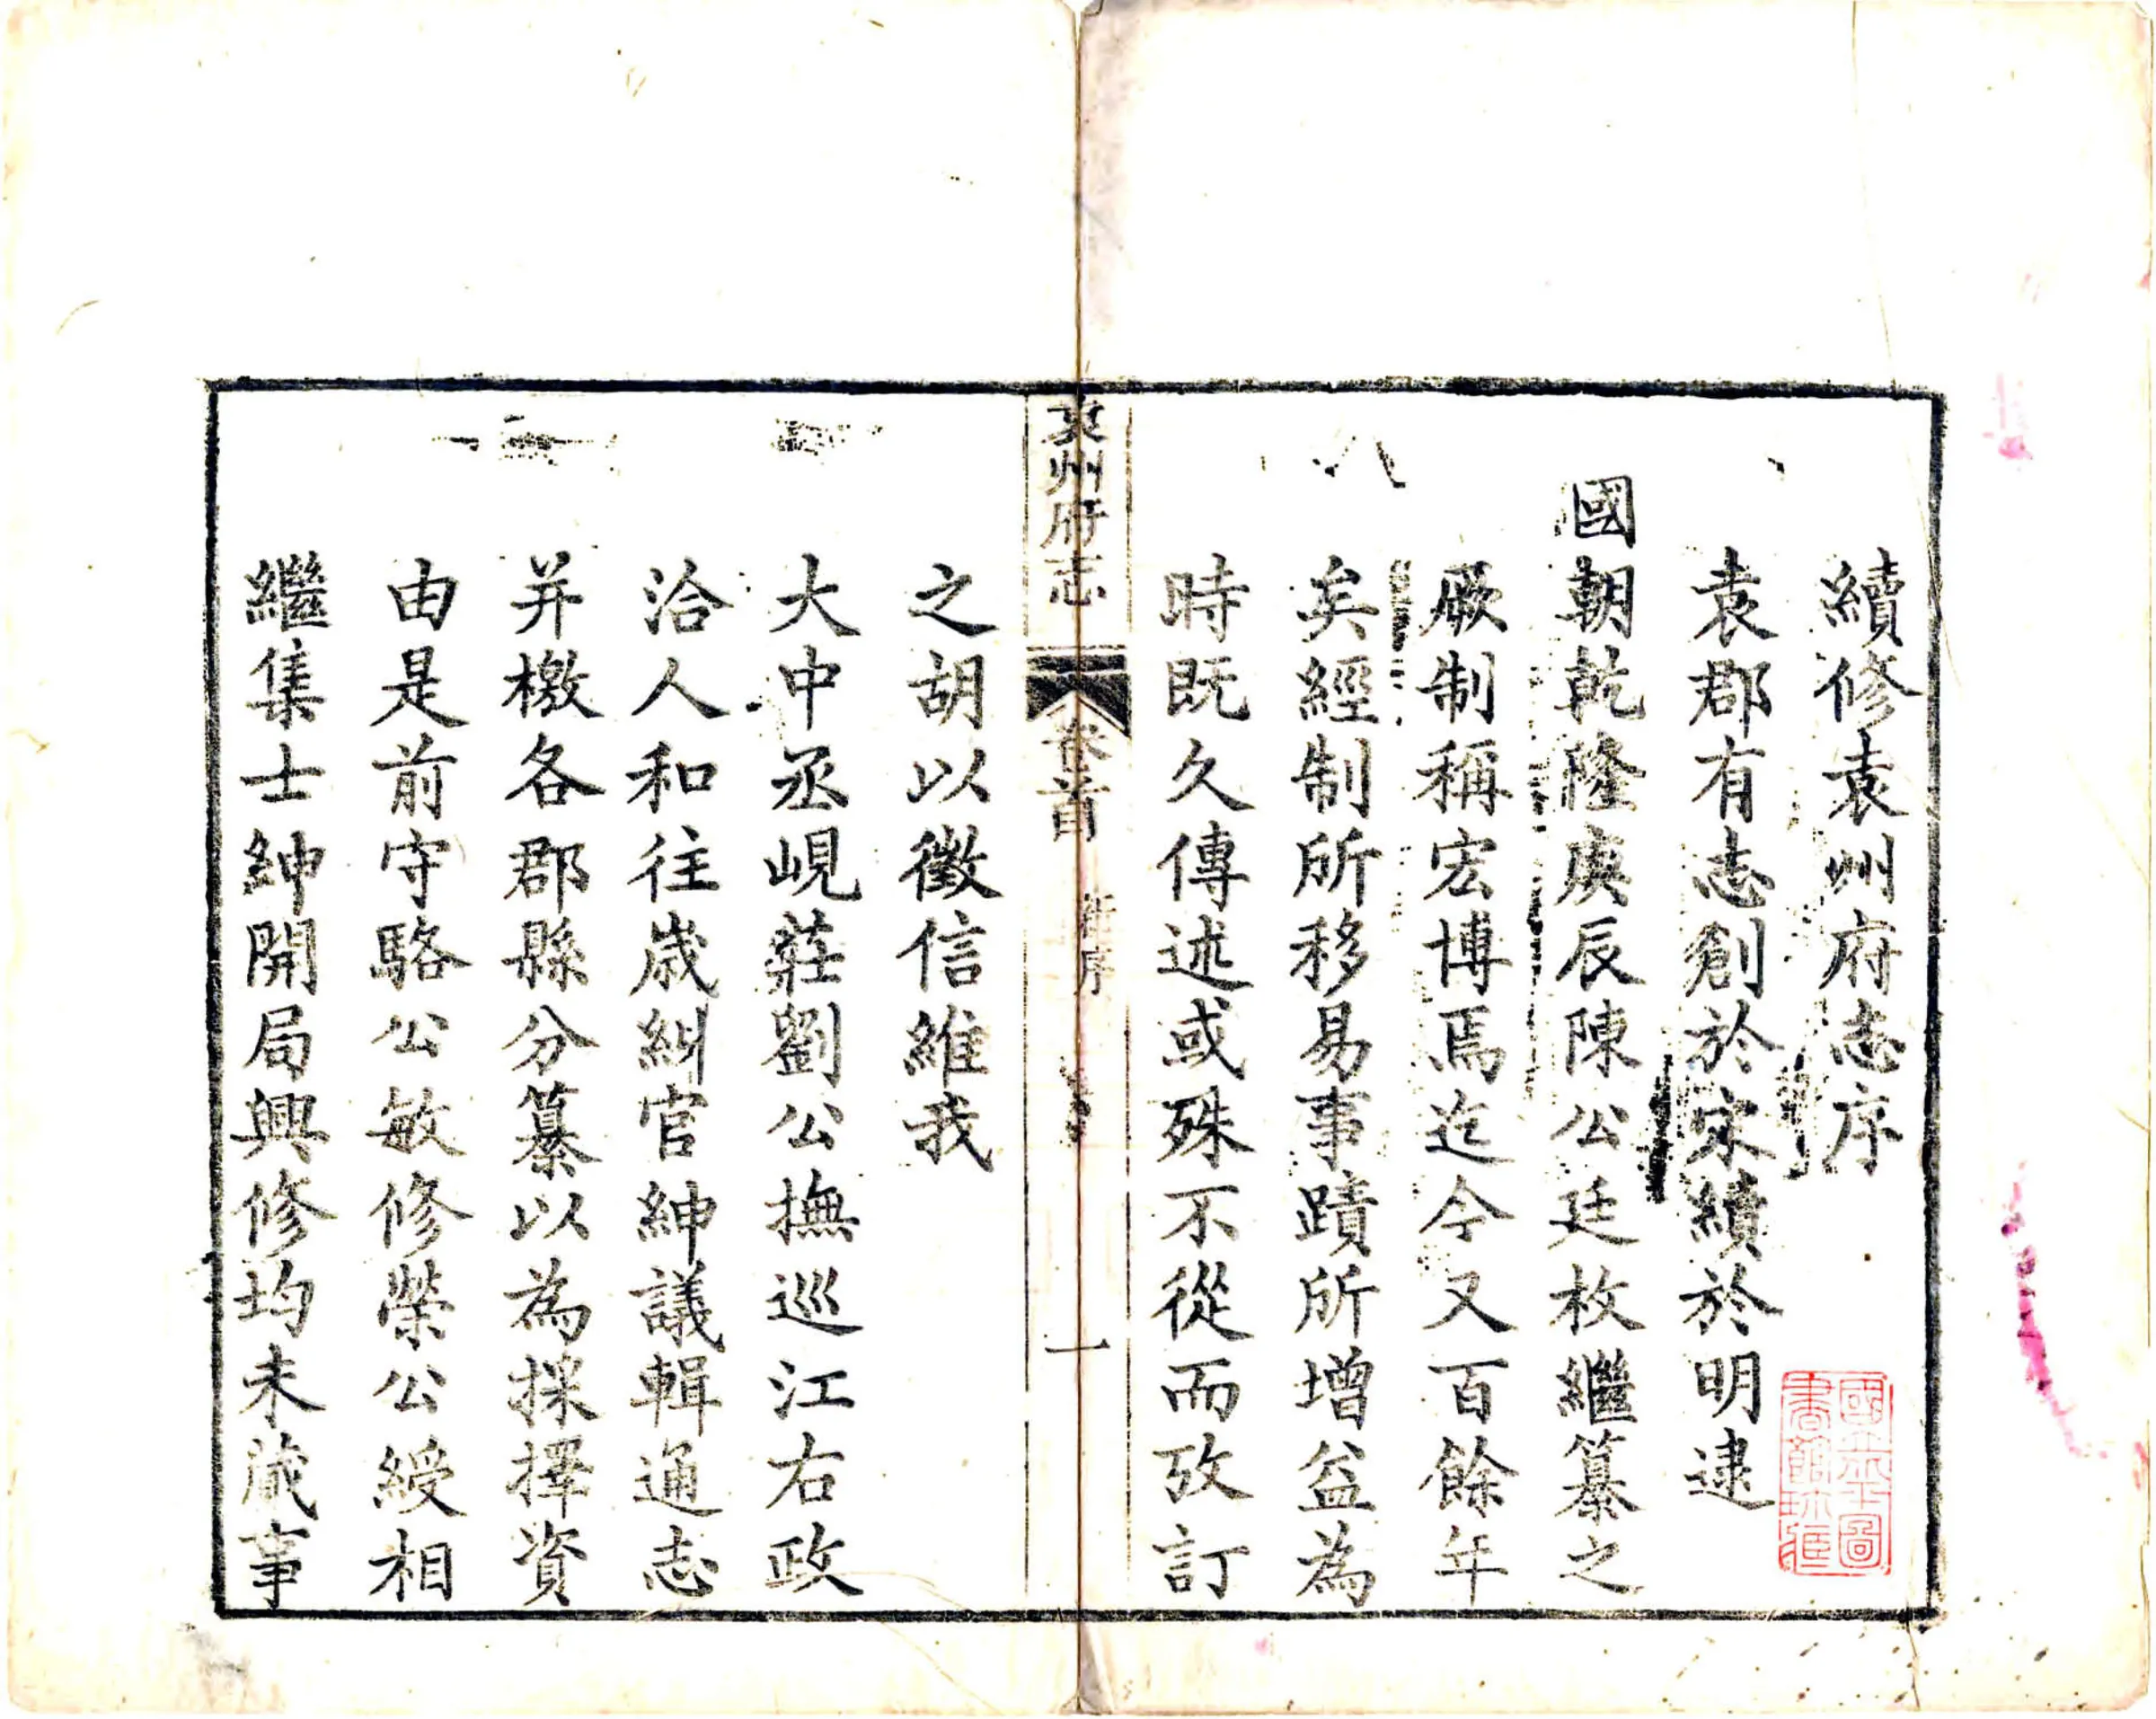 續修袁州府志序
袁郡有志創於宋續於明逮
國朝乾隆庚辰陳公廷枚繼纂之
厥制稱宏博焉迄今又百餘年
矣經制所移易事蹟所增益為
時既久傳述或殊不從而攷訂
袁州府志
卷首
新序
一
之胡以徵信維我
大中丞峴莊劉公撫巡江右政
洽人和往歲糾官紳議輯通志
并檄各郡縣分纂以為採擇資
由是前守駱公敏修榮公綬相
繼集士紳開局興修均未蕆事